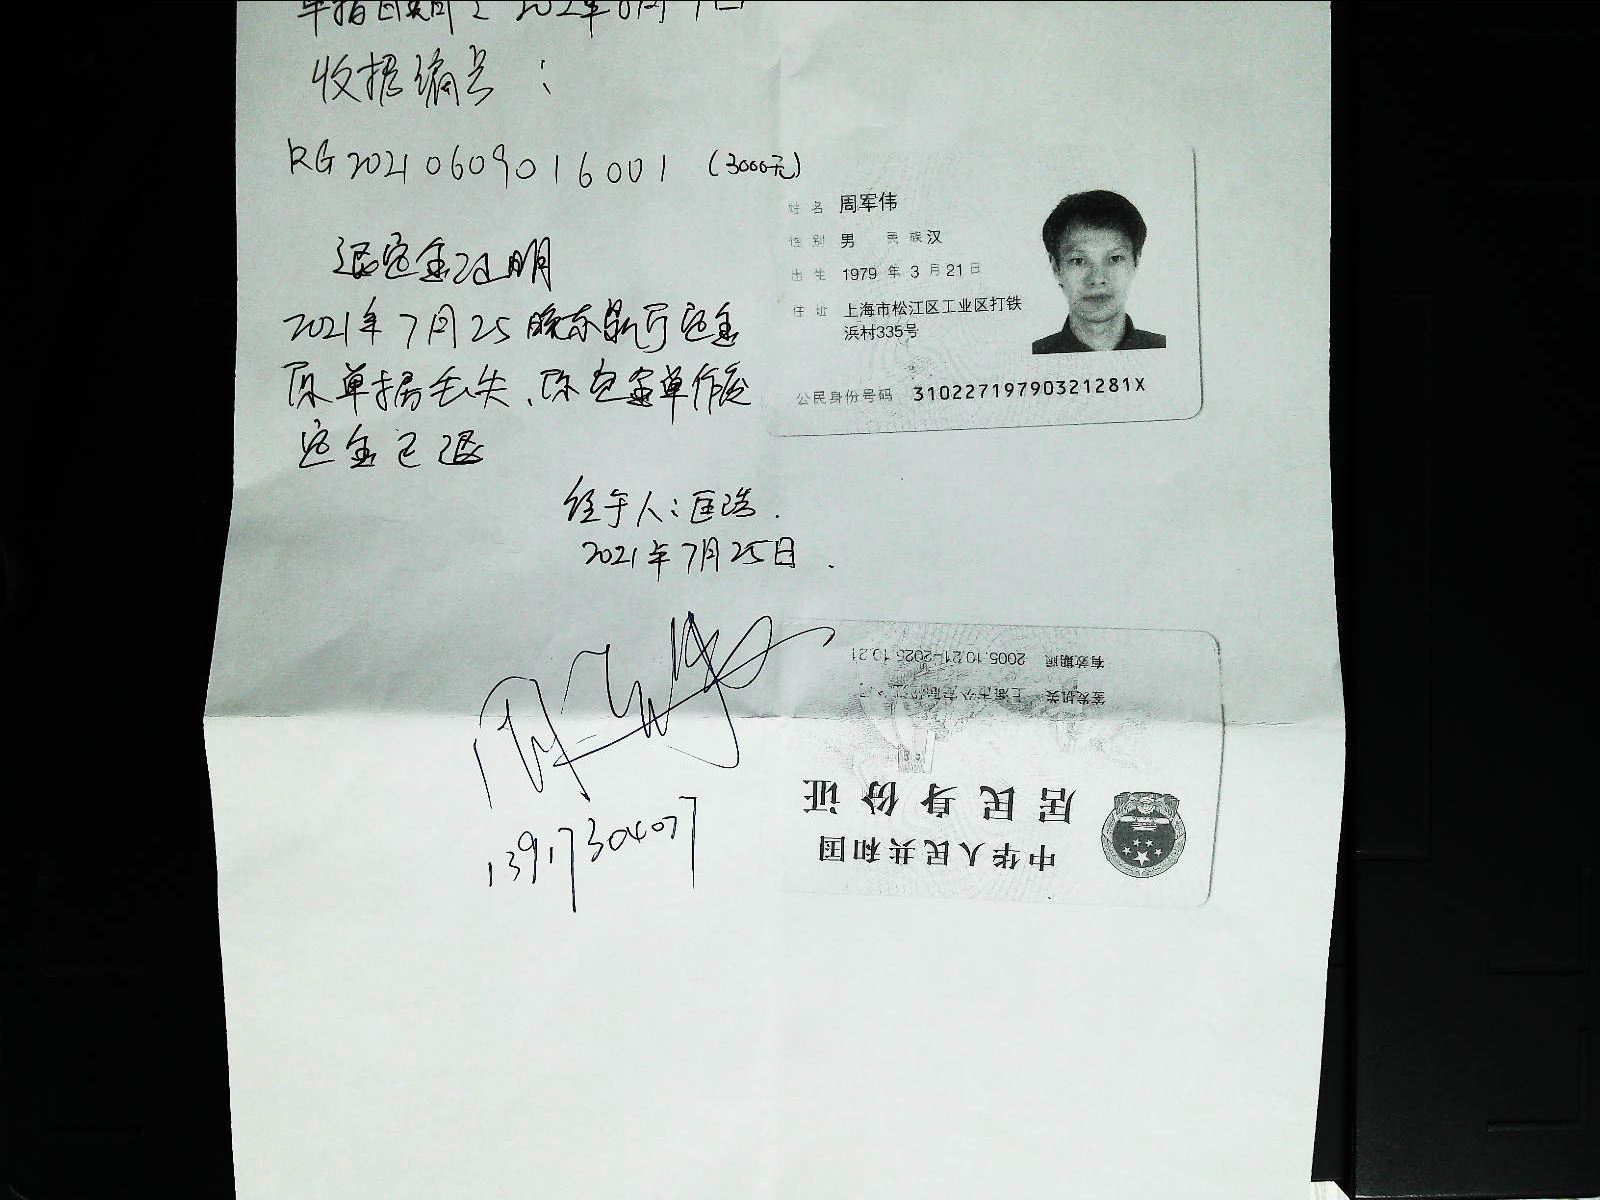 单据日期：2021年6月9日
收据编号：
RG20210609016001 (3000元)
退定金证明
2021年7月25晚东影厅定金
原单据丢失、原定金单作废
定金已退
经手人：匡浩.
2021年7月25日.
13917304077
姓名 周军伟
性别 男 民族 汉
出生 1979年3月21日
住址 上海市松江区工业区打铁
浜村335号
公民身份号码 31022719790321281X
中华人民共和国
居民身份证
签发机关 上海市公安局松江分局
有效期限 2005.10.21-2025.10.21